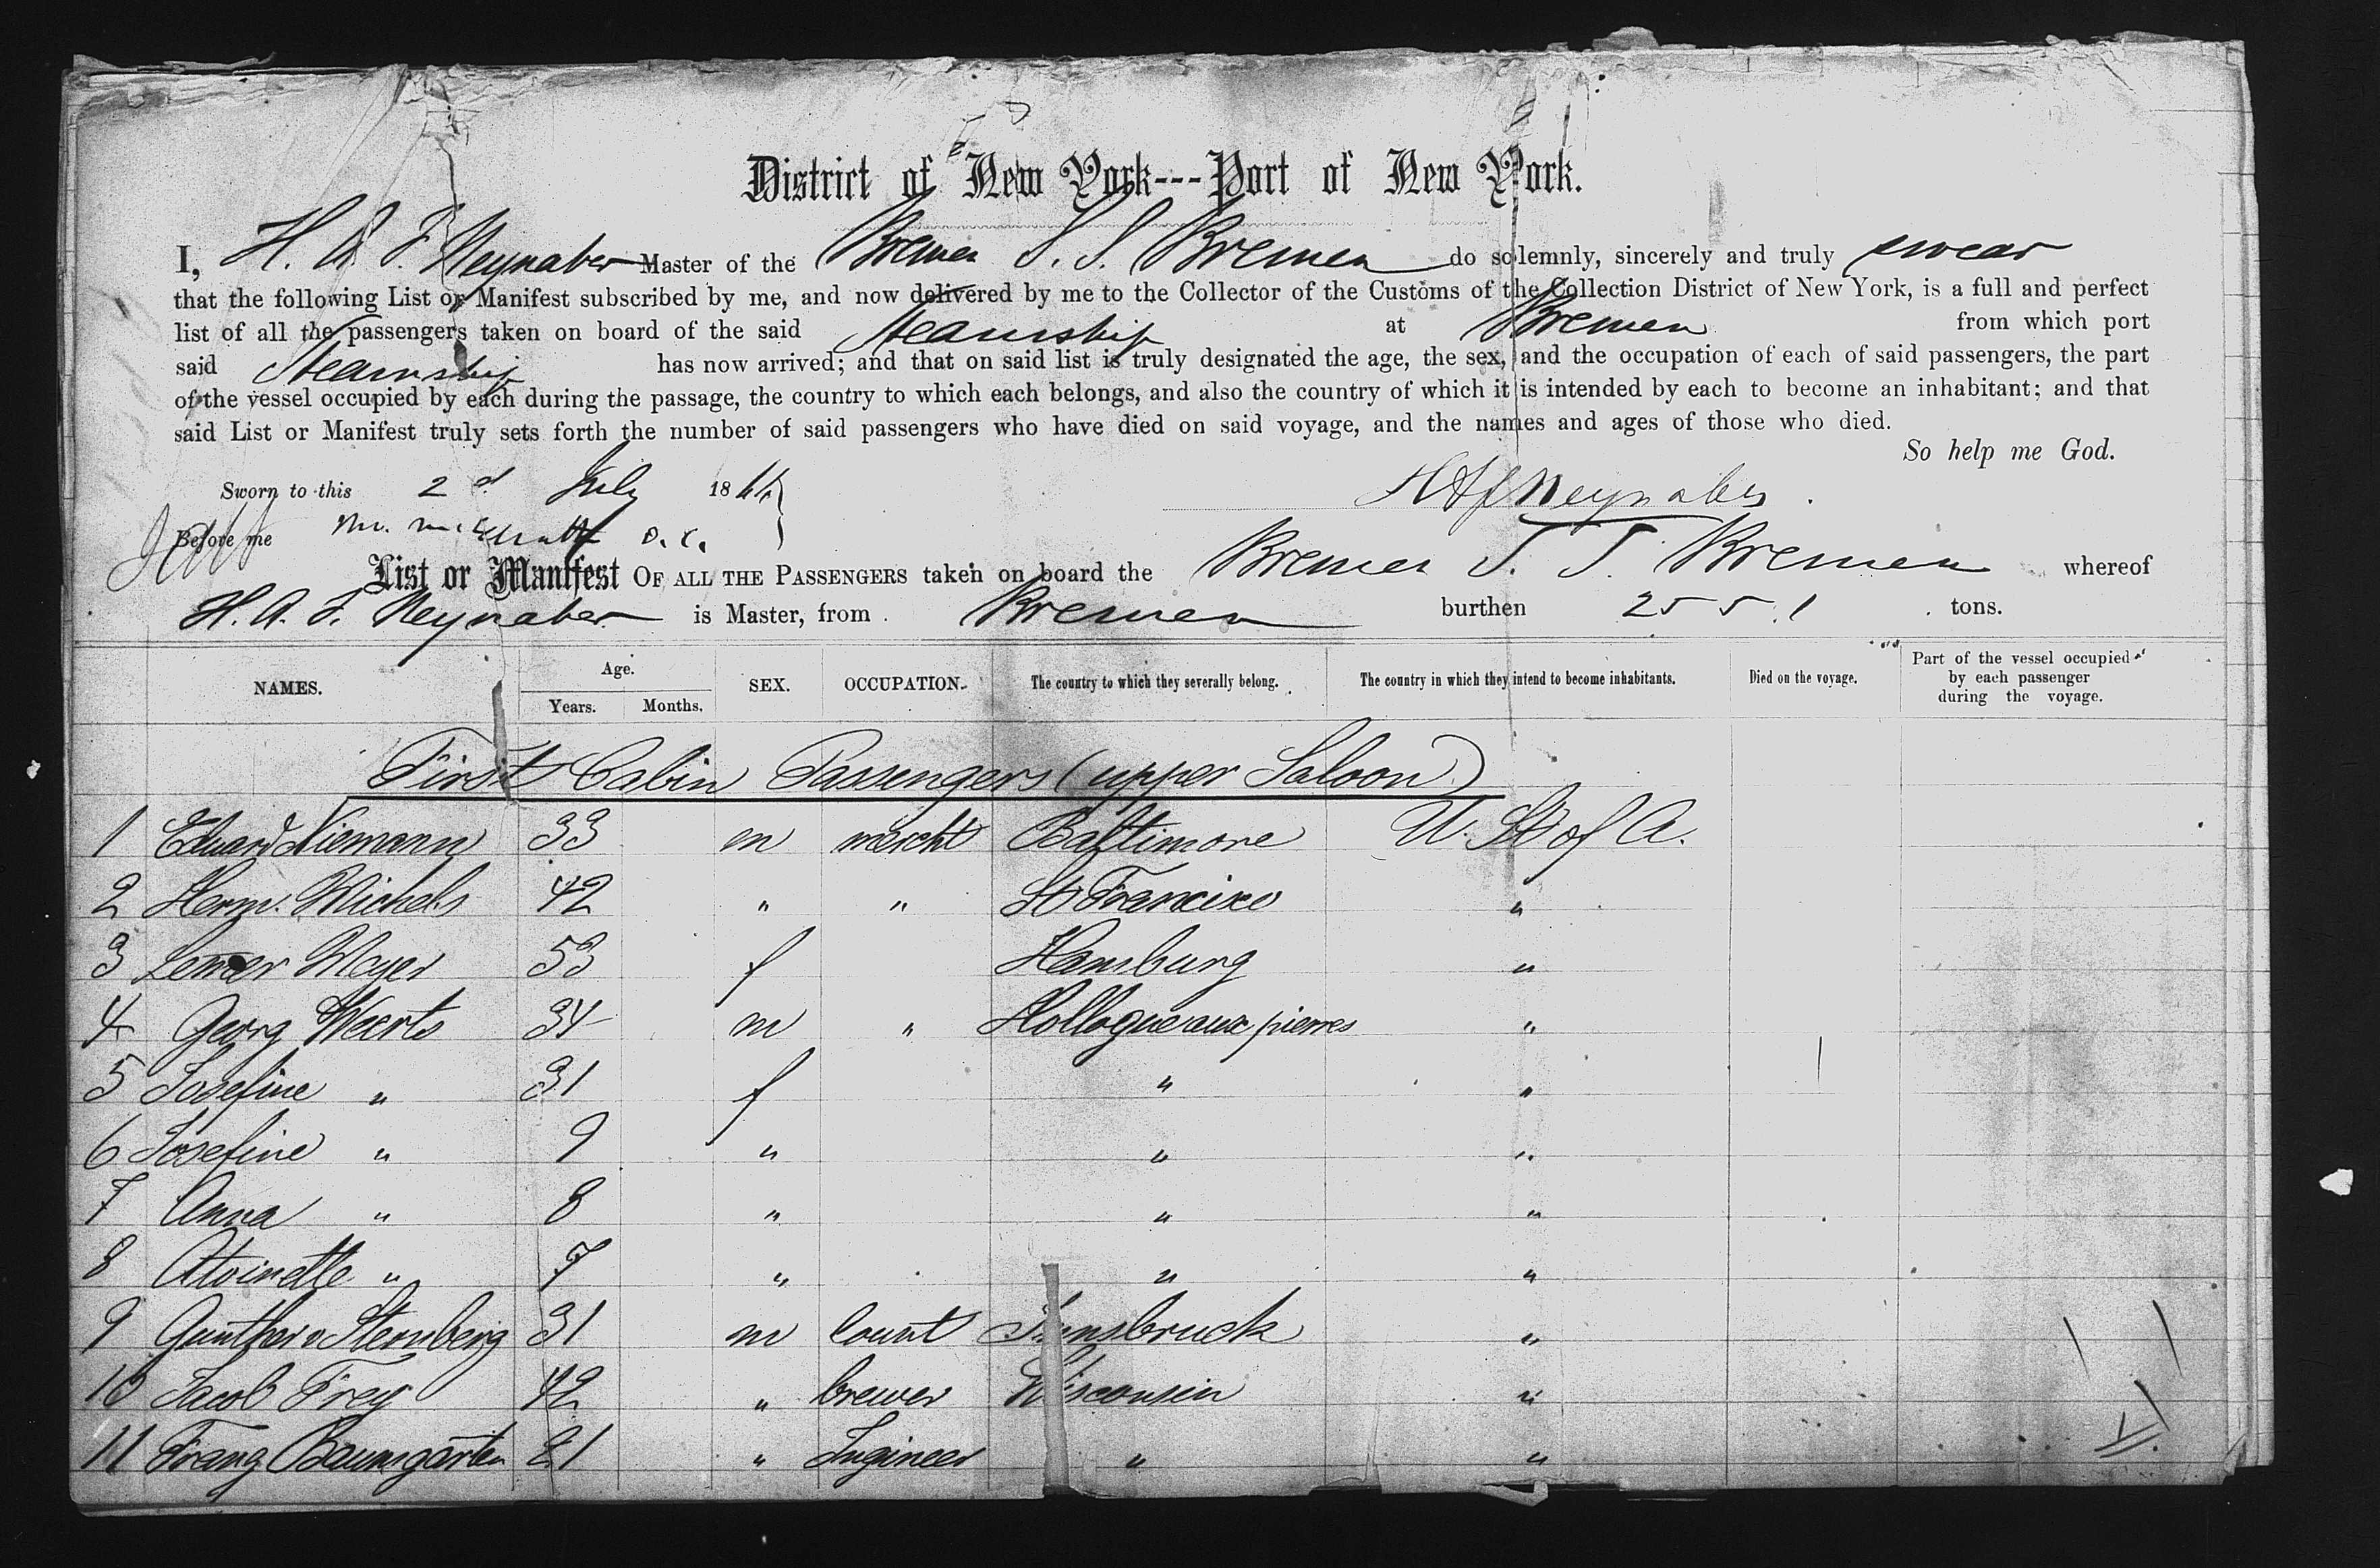 District of New York---Port of New York.
I, H. A. F. Neynaber Master of the Bremer S. S. Bremen do solemnly, sincerely and truly swear
that the following List or Manifest subscribed by me, and now delivered by me to the Collector of the Customs of the Collection District of New York, is a full and perfect
list of all the passengers taken on board of the said Steamship at Bremen from which port
said Steamship has now arrived; and that on said list is truly designated the age, the sex, and the occupation of each of said passengers, the part
of the vessel occupied by each during the passage, the country to which each belongs, and also the country of which it is intended by each to become an inhabitant; and that
said List or Manifest truly sets forth the number of said passengers who have died on said voyage, and the names and ages of those who died.
So help me God.
Sworn to this 2d July 1866
HAFNeynaber.
Before me D. C.
List or Manifest OF ALL THE PASSENGERS taken on board the Bremer S. S. Bremen whereof
H. A. F. Neynaber is Master, from Bremen burthen 255.1 tons.
NAMES. Age. Years. Months. SEX. OCCUPATION. The country to which they severally belong. The country in which they intend to become inhabitants. Died on the voyage. Part of the vessel occupied by each passenger during the voyage.
First Cabin Passengers (upper Saloon)
1 Eduard Niemann 33 m mercht Baltimore U. St of A.
2 Herm. Michels 42 " " St Francisco "
3 Mayer 53 f Hamburg "
4 Georg Weerts 34 m " Hollogne aux pierres "
5 Josefine " 31 f " "
6 Josefine " 9 " " "
7 Anna " 8 " " "
8 Atoinette " 7 " " "
9 Gunther v Sternberg 31 m Count Innsbruck "
10 Jacob Frey 42 " brewer Wisconsin "
11 Franz Baumgarten 21 " Ingineer " "